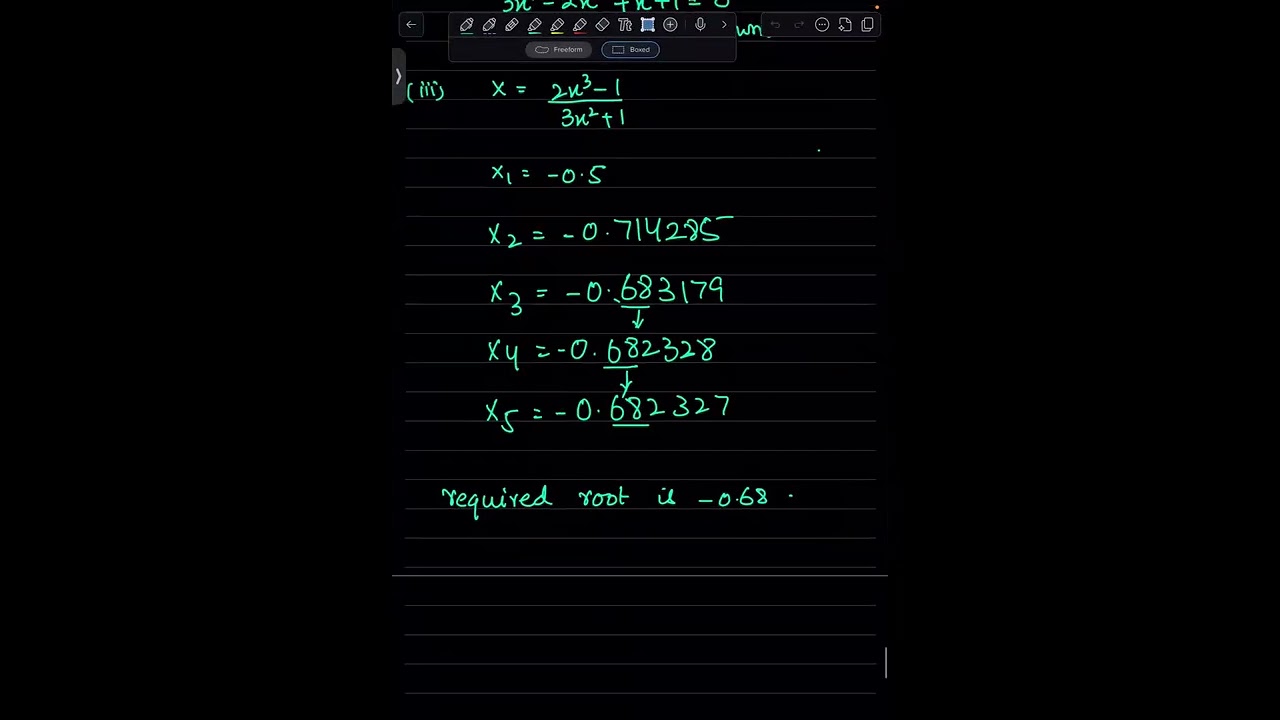 3x³ - 2x³ + x + 1 = 0
Freeform Boxed
(iii) x = 2x³ - 1 / 3x² + 1
x₁ = -0.5
x₂ = -0.714285
x₃ = -0.683179
x₄ = -0.682328
x₅ = -0.682327
required root is -0.68.